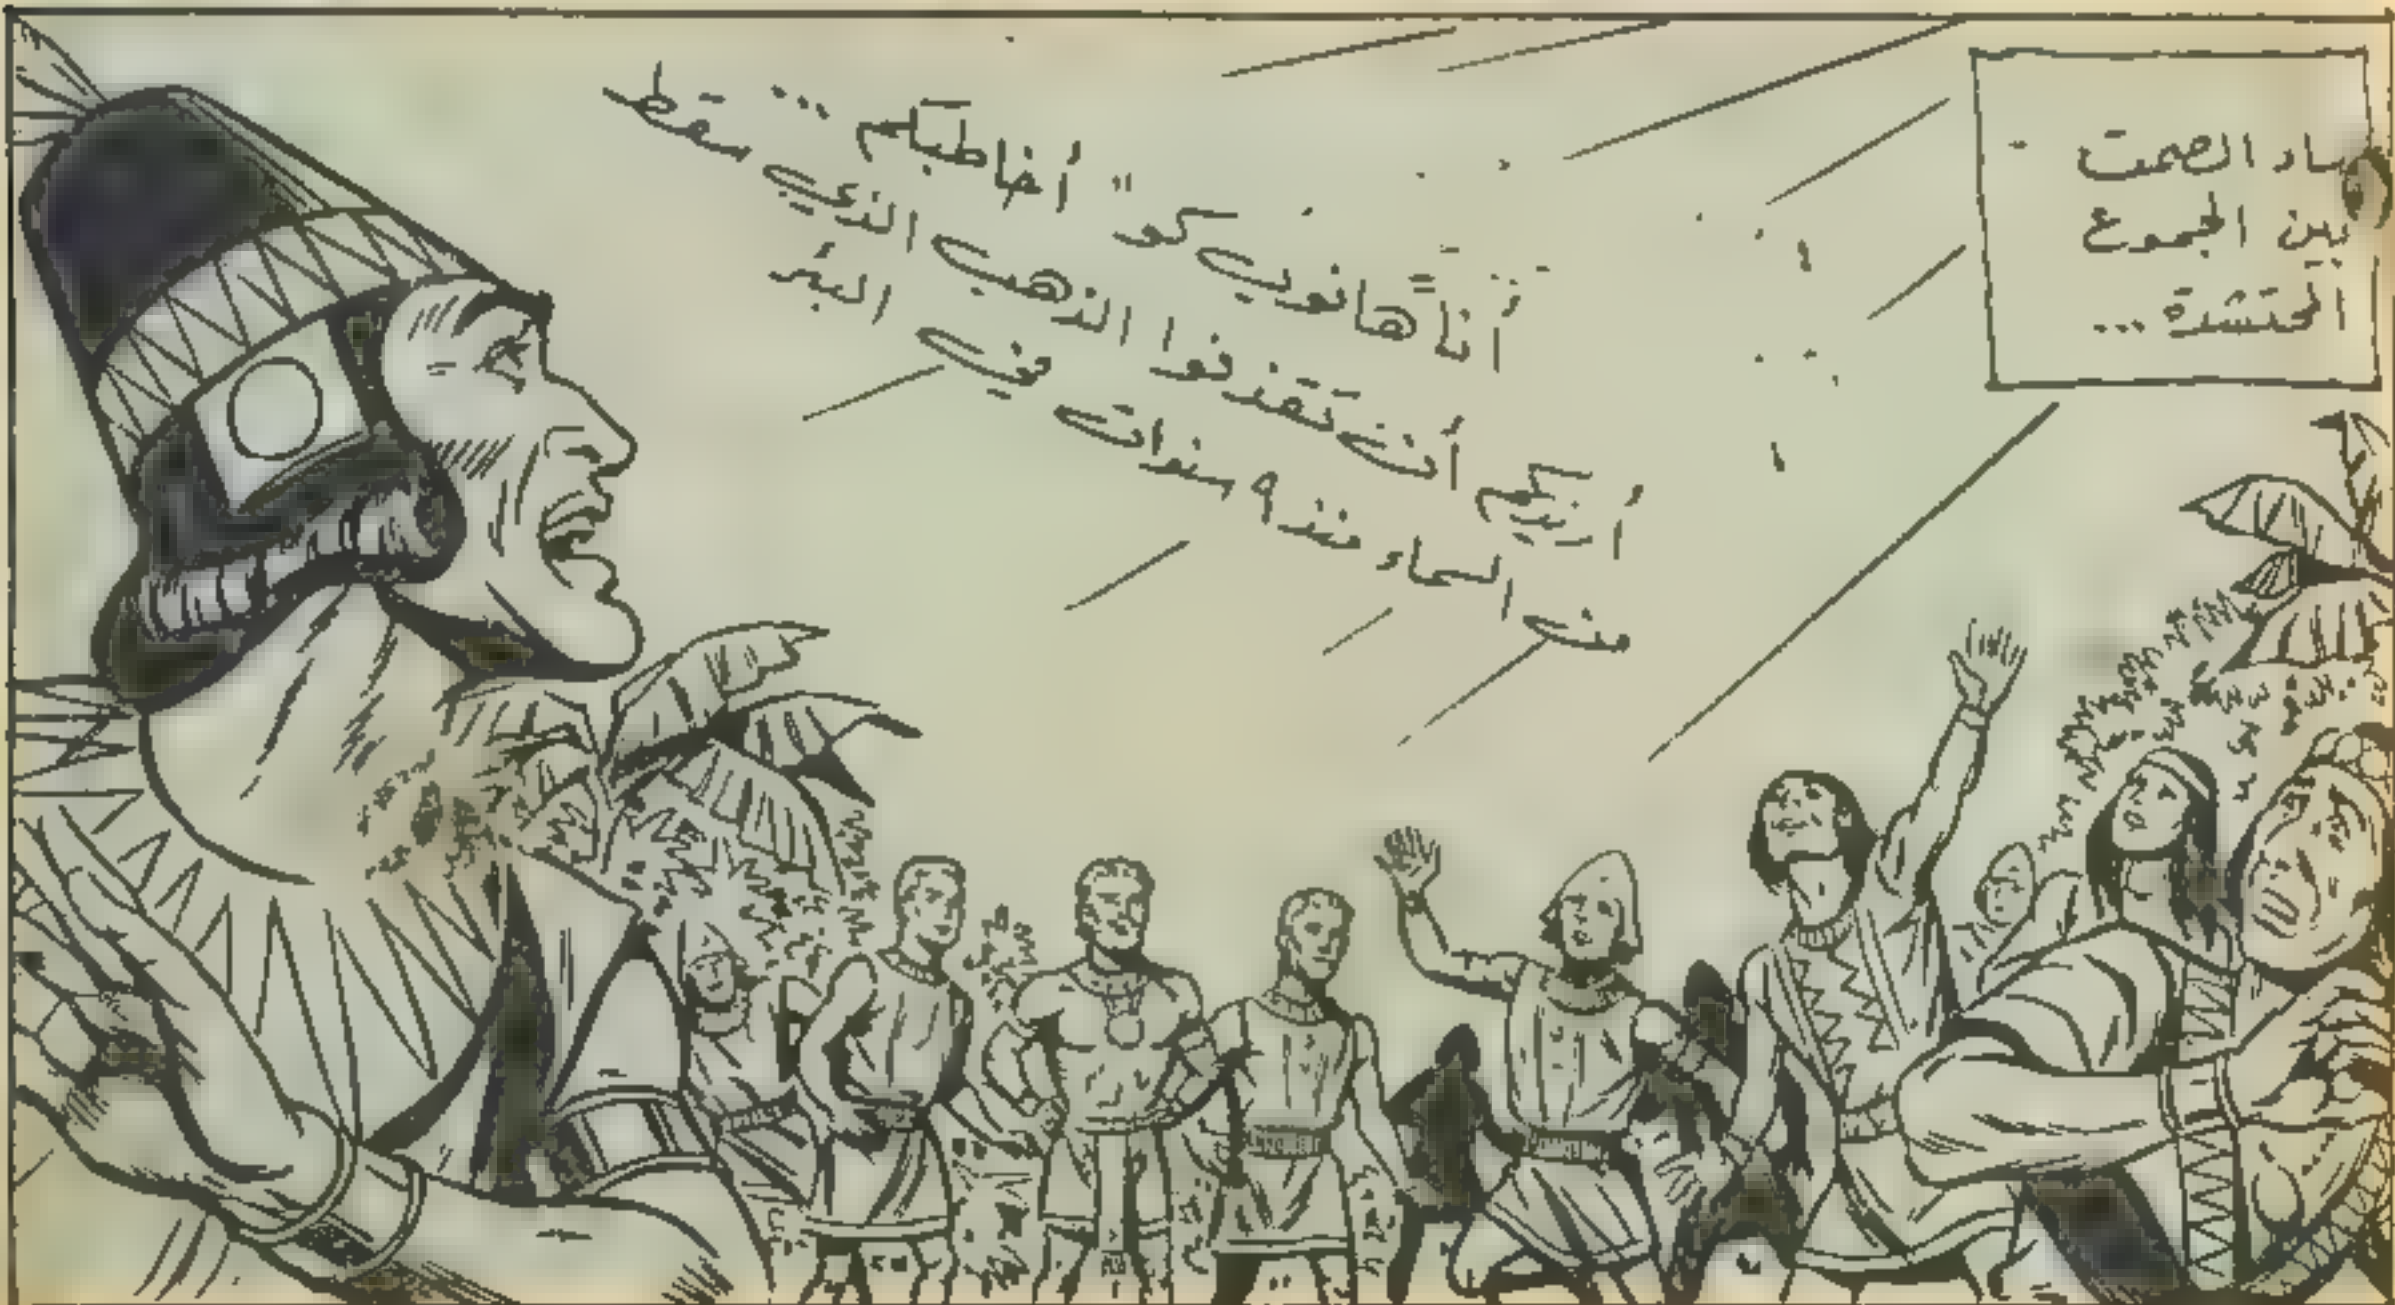 ساد الصمت
بين الجموع
المحتشدة...
أنا "هانوي كو" أخاطبكم...
أريدكم أن تقذفوا الذهب الذي سقط
من السماء منذ ٩ سنوات في البئر